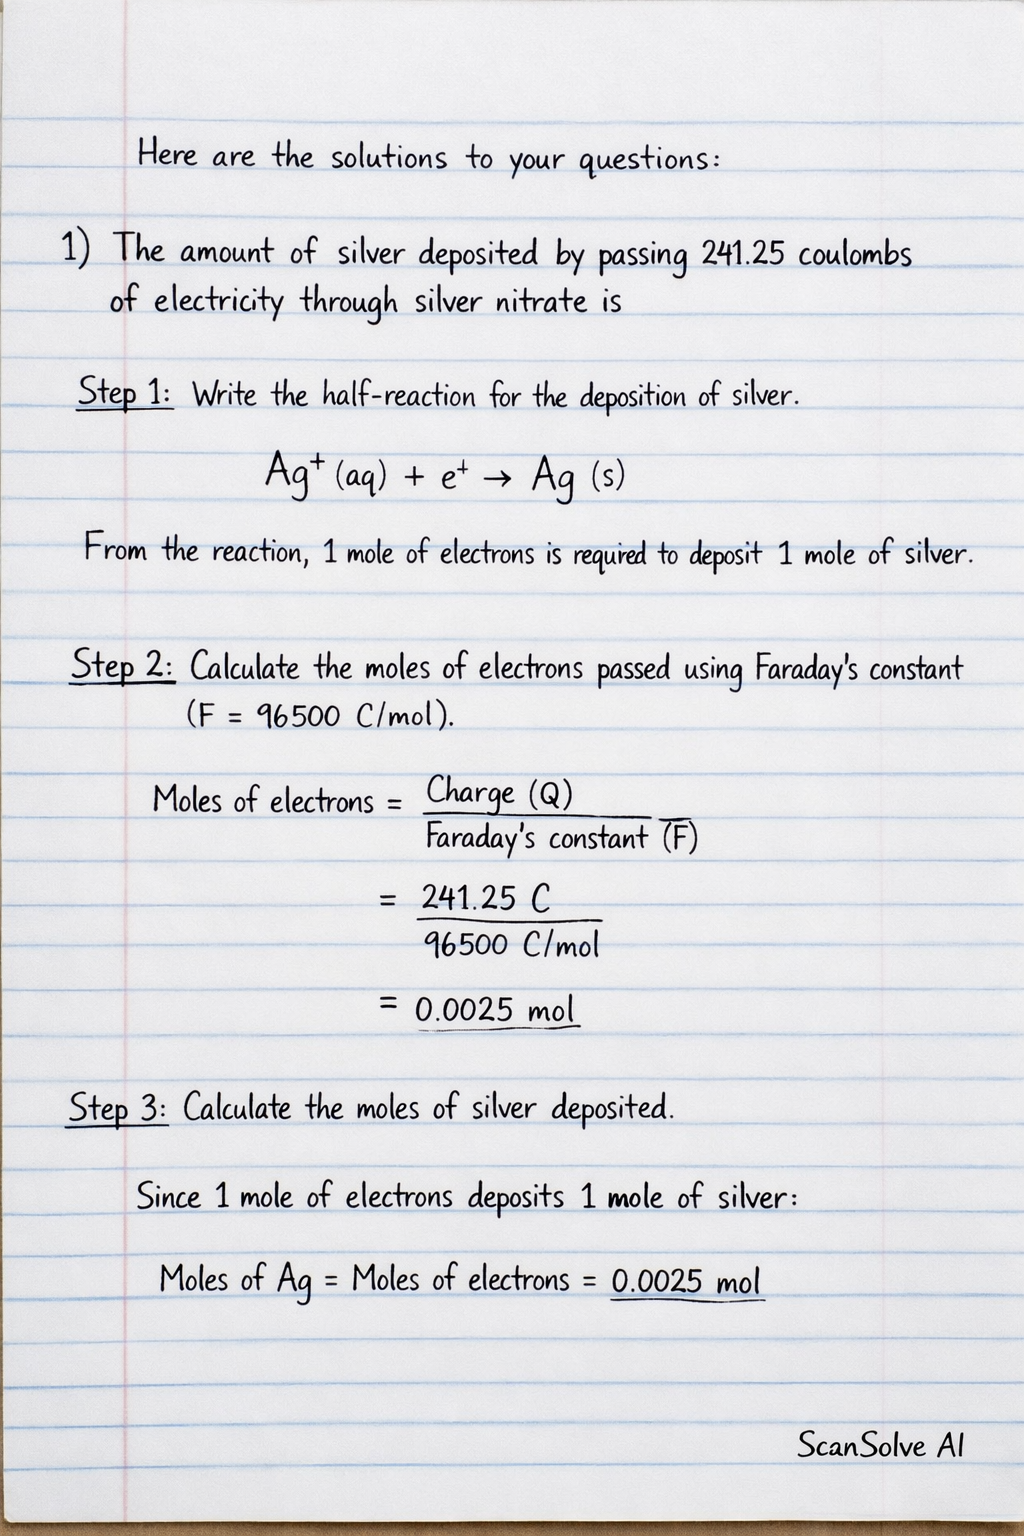 Here are the solutions to your questions:
1) The amount of silver deposited by passing 241.25 coulombs
of electricity through silver nitrate is
Step 1: Write the half-reaction for the deposition of silver.
Ag⁺ (aq) + e⁺ → Ag (s)
From the reaction, 1 mole of electrons is required to deposit 1 mole of silver.
Step 2: Calculate the moles of electrons passed using Faraday's constant
(F = 96500 C/mol).
Moles of electrons = Charge (Q)
Faraday's constant (F)
= 241.25 C
96500 C/mol
= 0.0025 mol
Step 3: Calculate the moles of silver deposited.
Since 1 mole of electrons deposits 1 mole of silver:
Moles of Ag = Moles of electrons = 0.0025 mol
ScanSolve AI